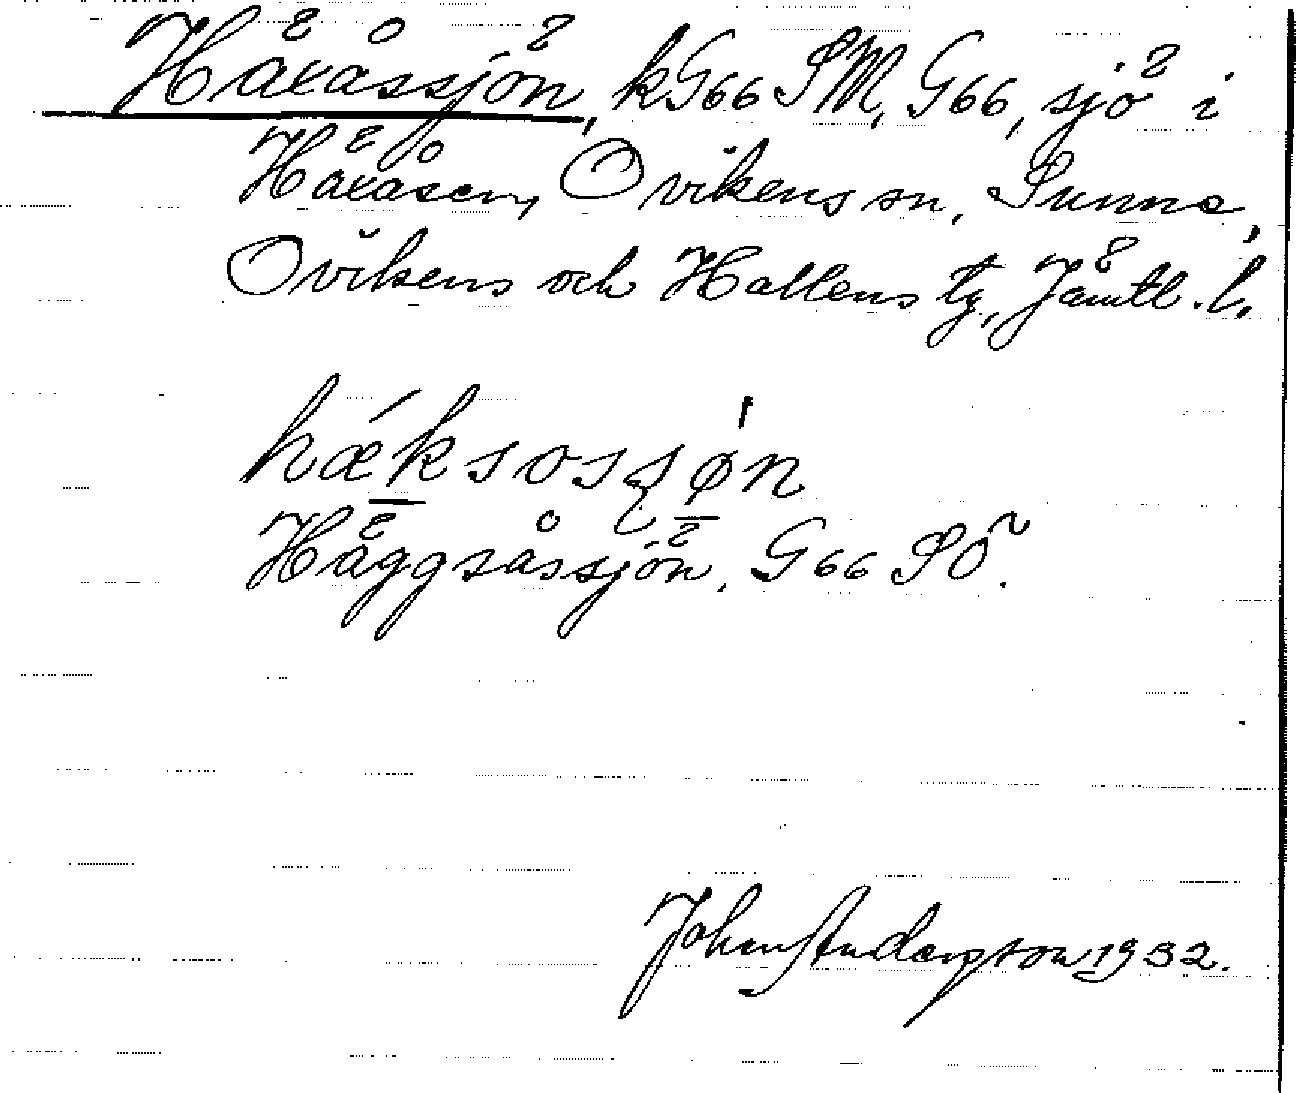 Häxåssjön, kG66 SM, G66, sjö i
Häxåsen, Ovikens sn, Sunne,
Ovikens och Hallens tg, Jämtl. l.
hǽksosʂø̍n
Häggsåssjön, G66 SÖ.
John Andersson 1932.